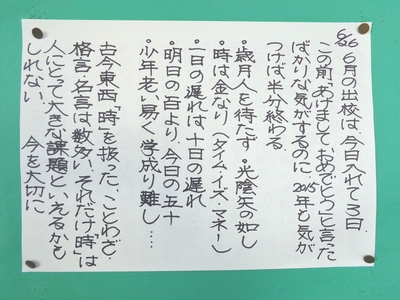 6/26 6月の出校は、今日入れて3日.
この前「あけましておめでとう」と言った
ばかりな気がするのに、2015年も気が
つけば半分終わる
・歳月人を待たず ・光陰矢の如し
・時は金なり(タイム・イズ・マネー)
・一日の遅れは十日の遅れ
・明日の百より、今日の五十
・少年老い易く学成り難し……
古今東西「時」を扱った、ことわざ・
格言・名言は数多い。それだけ「時」は
人にとって大きな課題といえるかも
しれない。 今を大切に